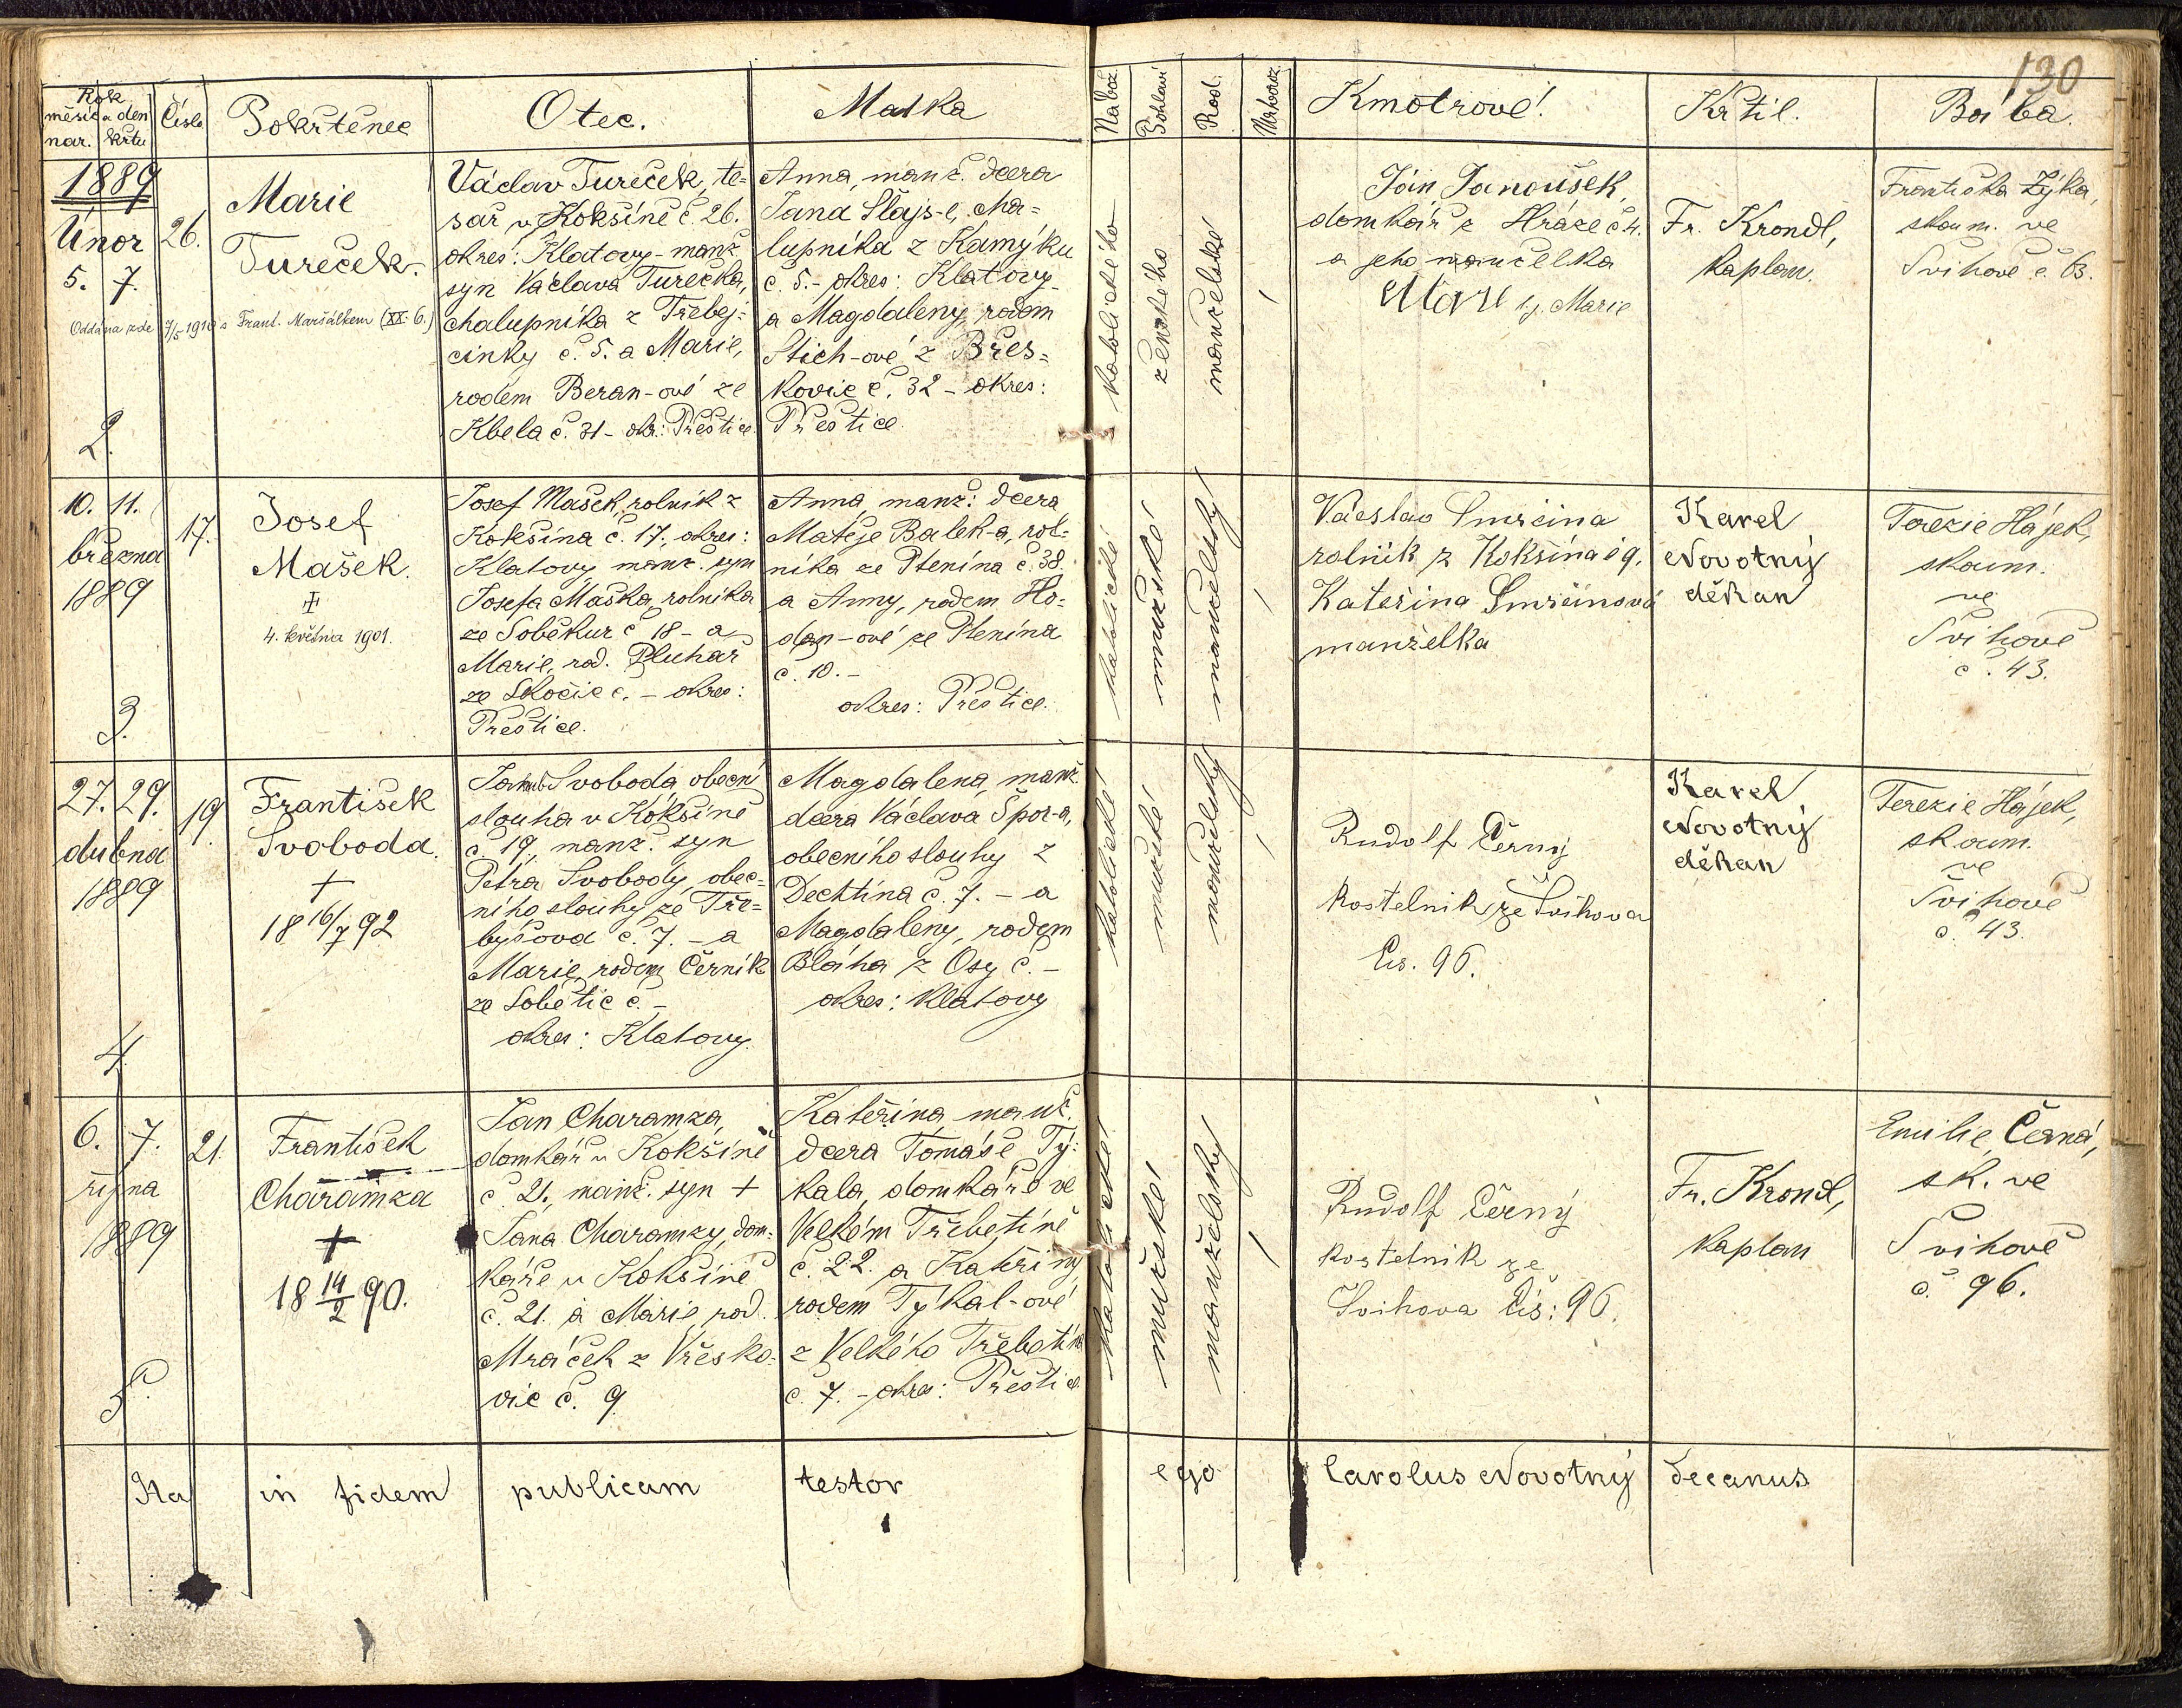 130
Rok
měsíc a den
nar. křtu
Číslo
Pokřtěnec
Otec.
Matka
Nábož.
Pohlaví
Rod.
Mrtvoroz.
Kmotrové!
Křtil.
Bába.
1889
Únor
5. 7.
26.
Marie
Tureček.
Oddána zde 7/5 1910 s Frant. Maršálkem (XX. 6.)
2.
Václav Tureček, te-
sař v Kokšíně č 26.
okres: Klatovy - manž
syn Václava Turečka,
chalupníka z Třebej-
cinky č. 5. a Marie,
rodem Beran-ové ze
Kbela č. 31 - okr.: Přeštice.
Anna, manž. dcera
Jana Šlajs-e, cha-
lupníka z Kamýku
č. 5. - okres: Klatovy
a Magdaleny, rodem
Stich-ové z Břes-
kovic č. 32 - okres:
Přeštice.
katolického
ženského
manželské
/
Ján Janoušek,
domkář z Hráze č 4.
a jeho manželka
Marie
Fr. Krondl,
kaplan.
Františka Zýka,
zkoum. ve
Švihově č. 63.
10. 11.
března
1889
17.
Josef
Mašek.
+
4. května 1901.
3.
Josef Mašek, rolník z
Kokšína č. 17., okres:
Klatovy manž. syn
Josefa Maška, rolníka
ze Soběkur č 18 - a
Marie, rod. Pluhař
ze Skočic č. - okres:
Přeštice.
Anna, manž: dcera
Matěje Balek-a, rol-
níka ze Ptenína č. 38.
a Anny, rodem Ho-
dan-ové ze Ptenína
č. 10. -
okres: Přeštice.
katolické
mužské
manželský
/
Václav Smrčina
rolník z Kokšína č 9.
Kateřina Smrčinová
manželka
Karel
Novotný
děkan
Terezie Hájek,
zkoum.
ve
Švihově
č. 43.
27. 29.
dubna
1889
19
František
Svoboda.
+
18 16/7 92
4.
Jakub Svoboda, obecní
slouha v Kokšíně
č. 19, manž. syn
Petra Svobody, obec-
ního slouhy ze Tře-
býšova č. 7. - a
Marie, rodem Černík
ze Sobětic č. -
okres: Klatovy.
Magdalena, manž.
dcera Václava Špor-a,
obecního slouhy z
Dechtína č. 7. - a
Magdaleny, rodem
Bláha z Osy č. -
okres: Klatovy
katolické
mužské
manželský
/
Rudolf Černý
kostelník ze Švihova
čís. 96.
Karel
Novotný
děkan
Terezie Hájek,
zkoum.
ve
Švihově
č. 43.
6. 7.
října
1889
21.
František
Charamza
+
18 14/2 90.
5.
Jan Charamza,
domkář v Kokšíně
č. 21, manž. syn +
Jana Charamzy, dom-
káře v Kokšíně
č. 21. a Marie, rod.
Mráček z Vřesko-
vic č. 9
Kateřina, manž.
dcera Tomáše Tý-
kala, domkáře ve
Velkém Třebetíně
č. 22. a Kateřiny
rodem Týkal-ové
z Velkého Třebetína
č. 7. - okres: Přeštice.
katolické
mužské
manželský
/
Rudolf Černý
kostelník ze
Švihova čís: 96.
Fr. Krondl,
kaplan
Emilie Černá,
zk. ve
Švihově
č. 96.
Ita in fidem publicam testor ego Carolus Novotný decanus